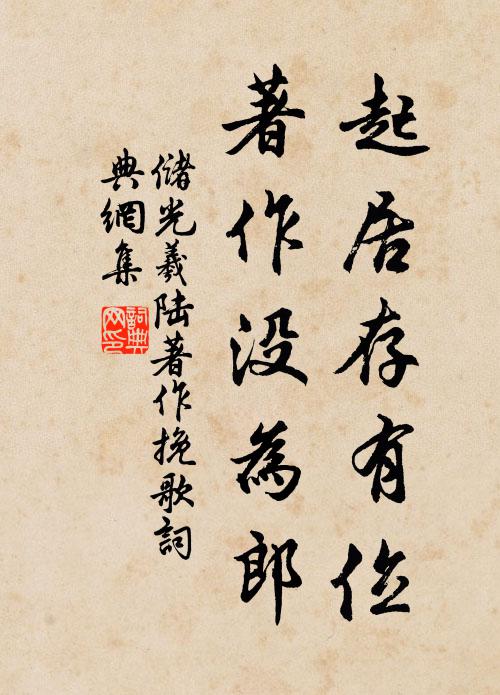 起居存有位
著作没為郎
儲光羲陆著作挽歌詞
典網集
詞典
网印